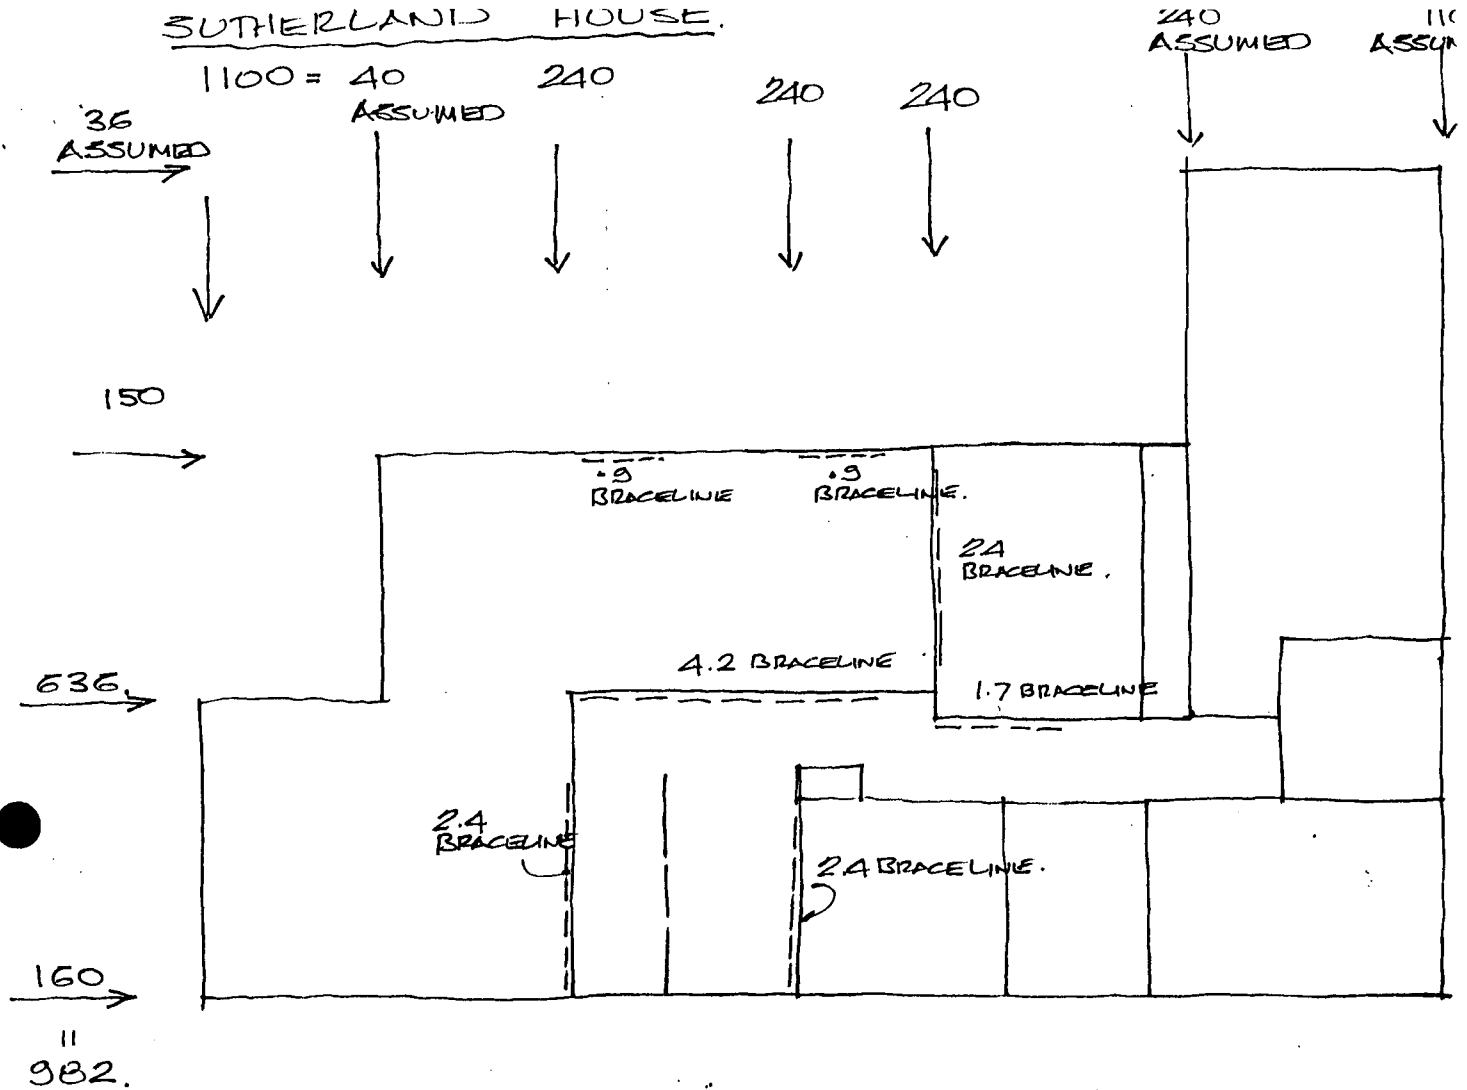 SUTHERLAND HOUSE.
240
ASSUMED
110
ASSUM
1100 = 40
ASSUMED
240
240
240
36
ASSUMED
150
.9
BRACELINE
.9
BRACELINE.
2.4
BRACELINE.
4.2 BRACELINE
636.
1.7 BRACELINE
2.4
BRACELINE
2.4 BRACELINE.
160
=
982.